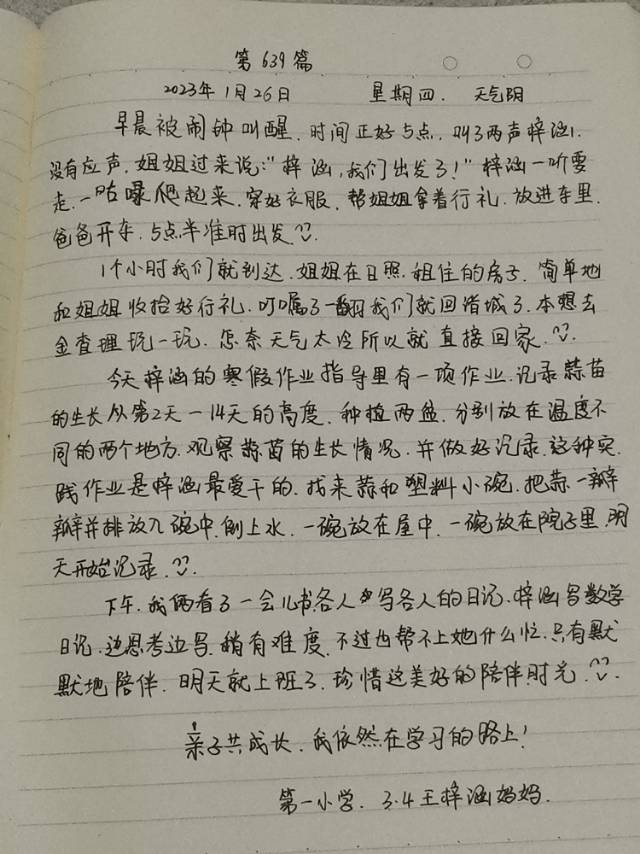 第639篇
2023年1月26日 星期四. 天气阴
早晨被闹钟叫醒. 时间正好5点. 叫了两声梓涵,
没有应声. 姐姐过来说:"梓涵,我们出发了!"梓涵一听要
走.一咕噜爬起来. 穿好衣服. 帮姐姐拿着行礼. 放进车里.
爸爸开车. 5点半准时出发.
1个小时我们就到达. 姐姐在日照.租住的房子. 简单地
和姐姐收拾好行礼. 叮嘱了一翻我们就回诸城了. 本想去
金查理玩一玩. 怎奈天气太冷所以就直接回家.
今天梓涵的寒假作业指导里有一项作业.记录蒜苗
的生长从第2天一14天的高度. 种植两盆. 分别放在温度不
同的两个地方. 观察蒜苗的生长情况. 并做好记录.这种实
践作业是梓涵最爱干的. 找来蒜和塑料小碗. 把蒜一瓣
瓣并排放入碗中.倒上水. 一碗放在屋中. 一碗放在院子里.明
天开始记录.
下午. 我俩看了一会儿书各人写各人的日记. 梓涵写数学
日记. 边思考边写. 稍有难度. 不过也帮不上她什么忙.只有默
默地陪伴. 明天就上班了. 珍惜这美好的陪伴时光.
亲子共成长. 我依然在学习的路上!
第一小学. 3.4王梓涵妈妈.